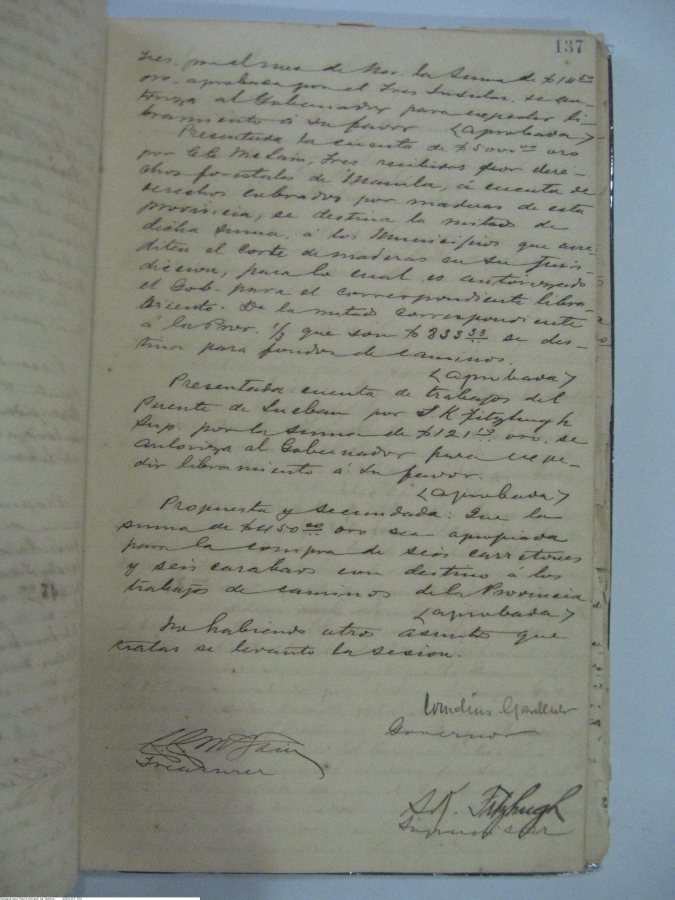 137
tres, por el mes de Nov. la suma de $14
oro, aprobada por el Tres Insular, se au-
toriza al Gobernador para expedir li-
bramiento á su favor <aprobada>
Presentada la cuenta de $5000.00 oro
por McLain, Tres. recibidos por dere-
chos forestales de Manila, á cuenta de
derechos cobrados por maderas de esta
provincia, se destina la mitad de
dicha suma, á los Municipios que acre-
diten el corte de maderas en su juris-
diccion, para lo cual es autorizado
el Gob. para el correspondiente libra-
miento. De la mitad correspondiente
á la Prov. 1/3 que son $833 33 se des-
tina para fondos de caminos.
<aprobada>
Presentada cuenta de trabajos del
Puente de Lucban por S K Fitzhugh
Sup. por la suma de $121 oro, se
autoriza al Gobernador para expe-
dir libramiento á su favor.
<aprobada>
Propuesta y secundada: Que la
suma de $450 00 oro sea apropiada
para la compra de seis carretones
y seis carabaos con destino á los
trabajos de caminos de la Provincia
<aprobada>
No habiendo otro asunto que
tratar se levanto la sesion.
Cornelius Gardener
Governor
Treasurer
S.K. Fitzhugh
Supervisor